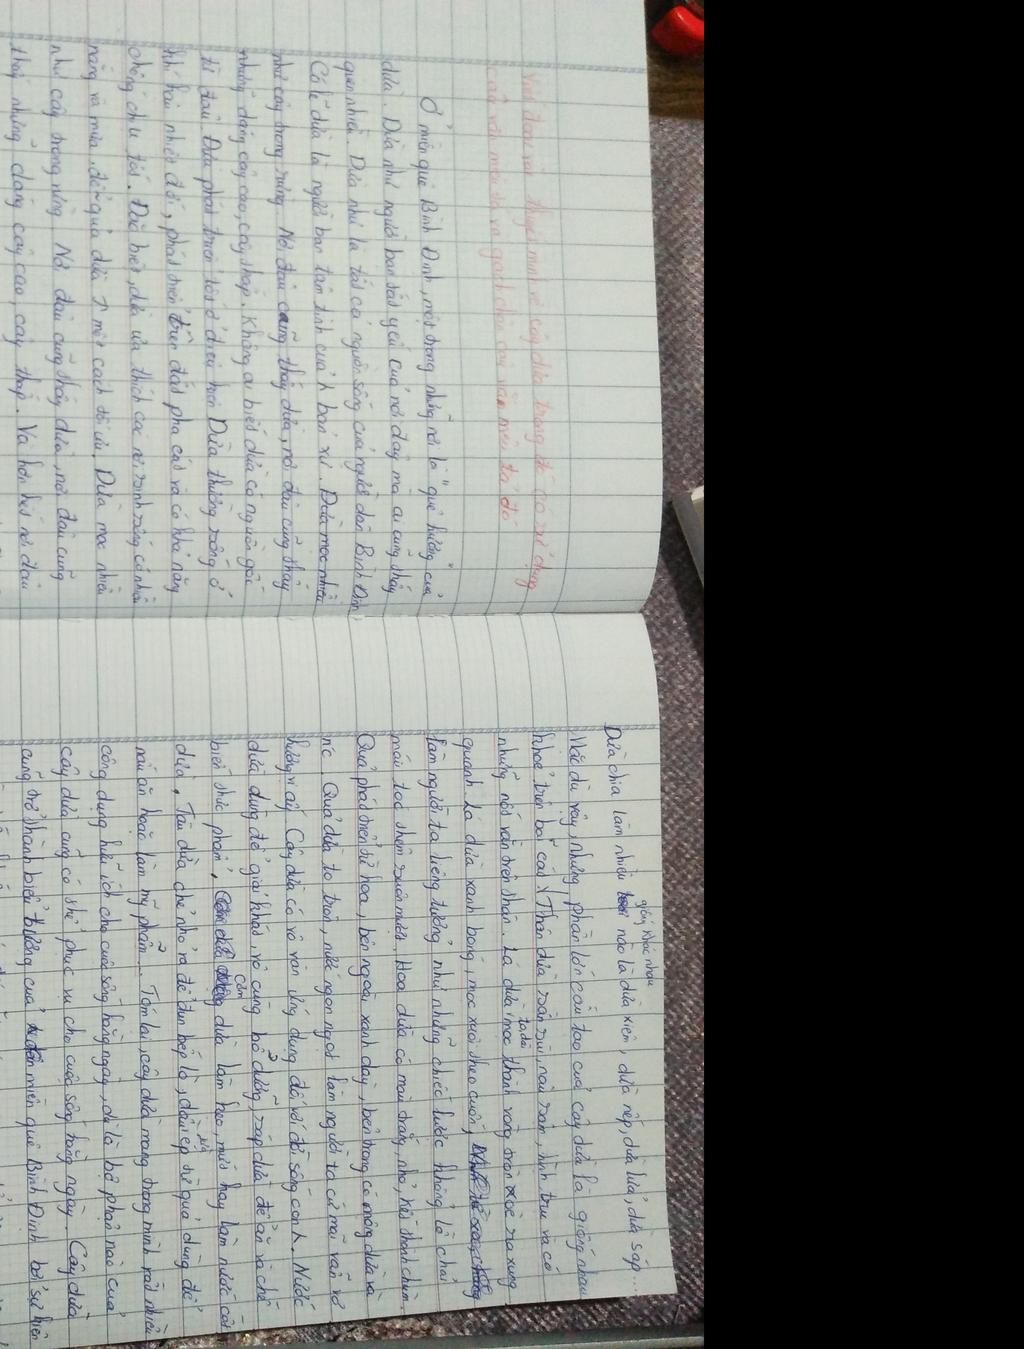 Viết đoạn văn thuyết minh về cây dừa trong đó có sử dụng
câu văn miêu tả và gạch chân câu văn miêu tả đó
Ở miền quê Bình Định, một trong những nơi là "quê hương" của
dừa. Dừa như người bạn thân yêu của nơi đây mà ai cũng thấy
quen nhiều. Dừa như là tất cả nguồn sống của người dân Bình Định,
Có lẽ dừa là người bạn tâm tình của h bao xứ. Dừa mọc nhiều
như cây trong rừng. Nơi đâu cũng thấy dừa, nơi đâu cũng thấy
những dáng cây cao, cây thấp. Không ai biết dừa có nguồn gốc
từ đâu. Dừa phát triển tốt ở điều kiện Dừa thường sống ở
khí hậu nhiệt đới, phát triển trên đất pha cát và có khả năng
chống chịu tốt. Dừa biết, dừa ưa thích các nơi sinh sống có nhiều
nắng và mưa, để quả dừa ↑ một cách tối ưu. Dừa mọc nhiều
như cây trong rừng. Nơi đâu cũng thấy dừa, nơi đâu cũng
thấy những dáng cây cao, cây thấp. Và hơn hết nơi đâu
Dừa chia làm nhiều giống khác nhau nào là dừa xiêm, dừa nếp, dừa lửa, dừa sáp...
Mặc dù vậy, nhưng phần lớn cấu tạo của cây dừa là giống nhau
khoẻ trên bát cát. Thân dừa sần sùi, nâu sẫm, hình trụ và có
những nốt vằn trên thân. Lá dừa to, dài mọc thành vòng tròn xoè ra xung
quanh. Lá dừa xanh bóng, mọc xuôi theo cuốn,
làm người ta liêng tưởng như những chiếc lược khổng lồ chải
mái tóc thêm suôn mượt. Hoa dừa có màu trắng, nhỏ, kết thành chùm.
Quả phát triển từ hoa, bên ngoài xanh dày, bên trong có mộng dừa và
nc. Quả dừa to tròn, nước ngon ngọt làm người ta cứ mãi vấn vơ
hương vị ấy. Cây dừa có vô vàn ứng dụng đối với đời sống con h. Nước
dừa dùng để giải khát, vô cùng bổ dưỡng, sáp dừa để ăn và chế
biến thực phẩm, cơm dừa làm kẹo, mứt hay làm nước cốt
dừa. Tàu dừa chẻ nhỏ ra để đun bếp lò, dầu ép từ quả dùng để
nấu ăn hoặc làm mỹ phẩm... Tóm lại, cây dừa mang trong mình rất nhiều
công dụng hữu ích cho cuộc sống hằng ngày, dù là bộ phận nào của
cây dừa cũng có thể phục vụ cho cuộc sống hằng ngày. Cây dừa
cũng trở thành biểu tượng của miền quê Bình Định bởi sự hiện